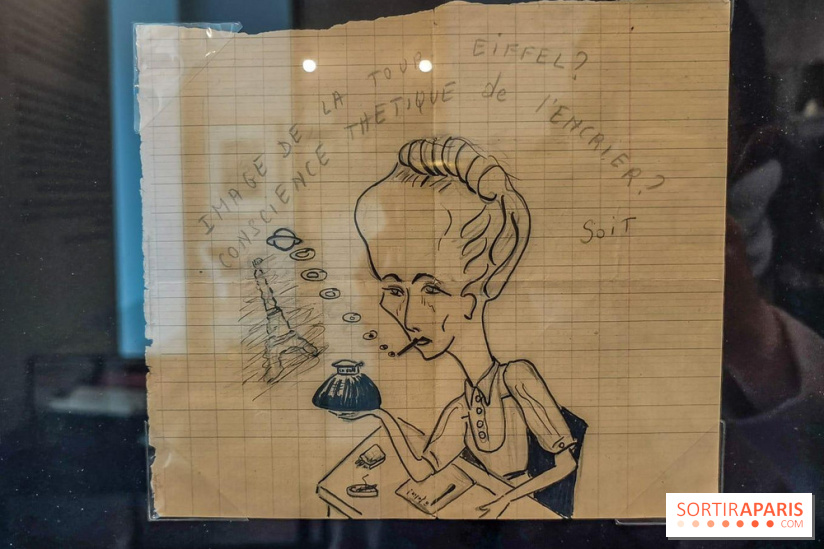 IMAGE DE LA TOUR EIFFEL?
CONSCIENCE THETIQUE de l'ENCRIER?
SOIT
SORTIRAPARIS
.COM